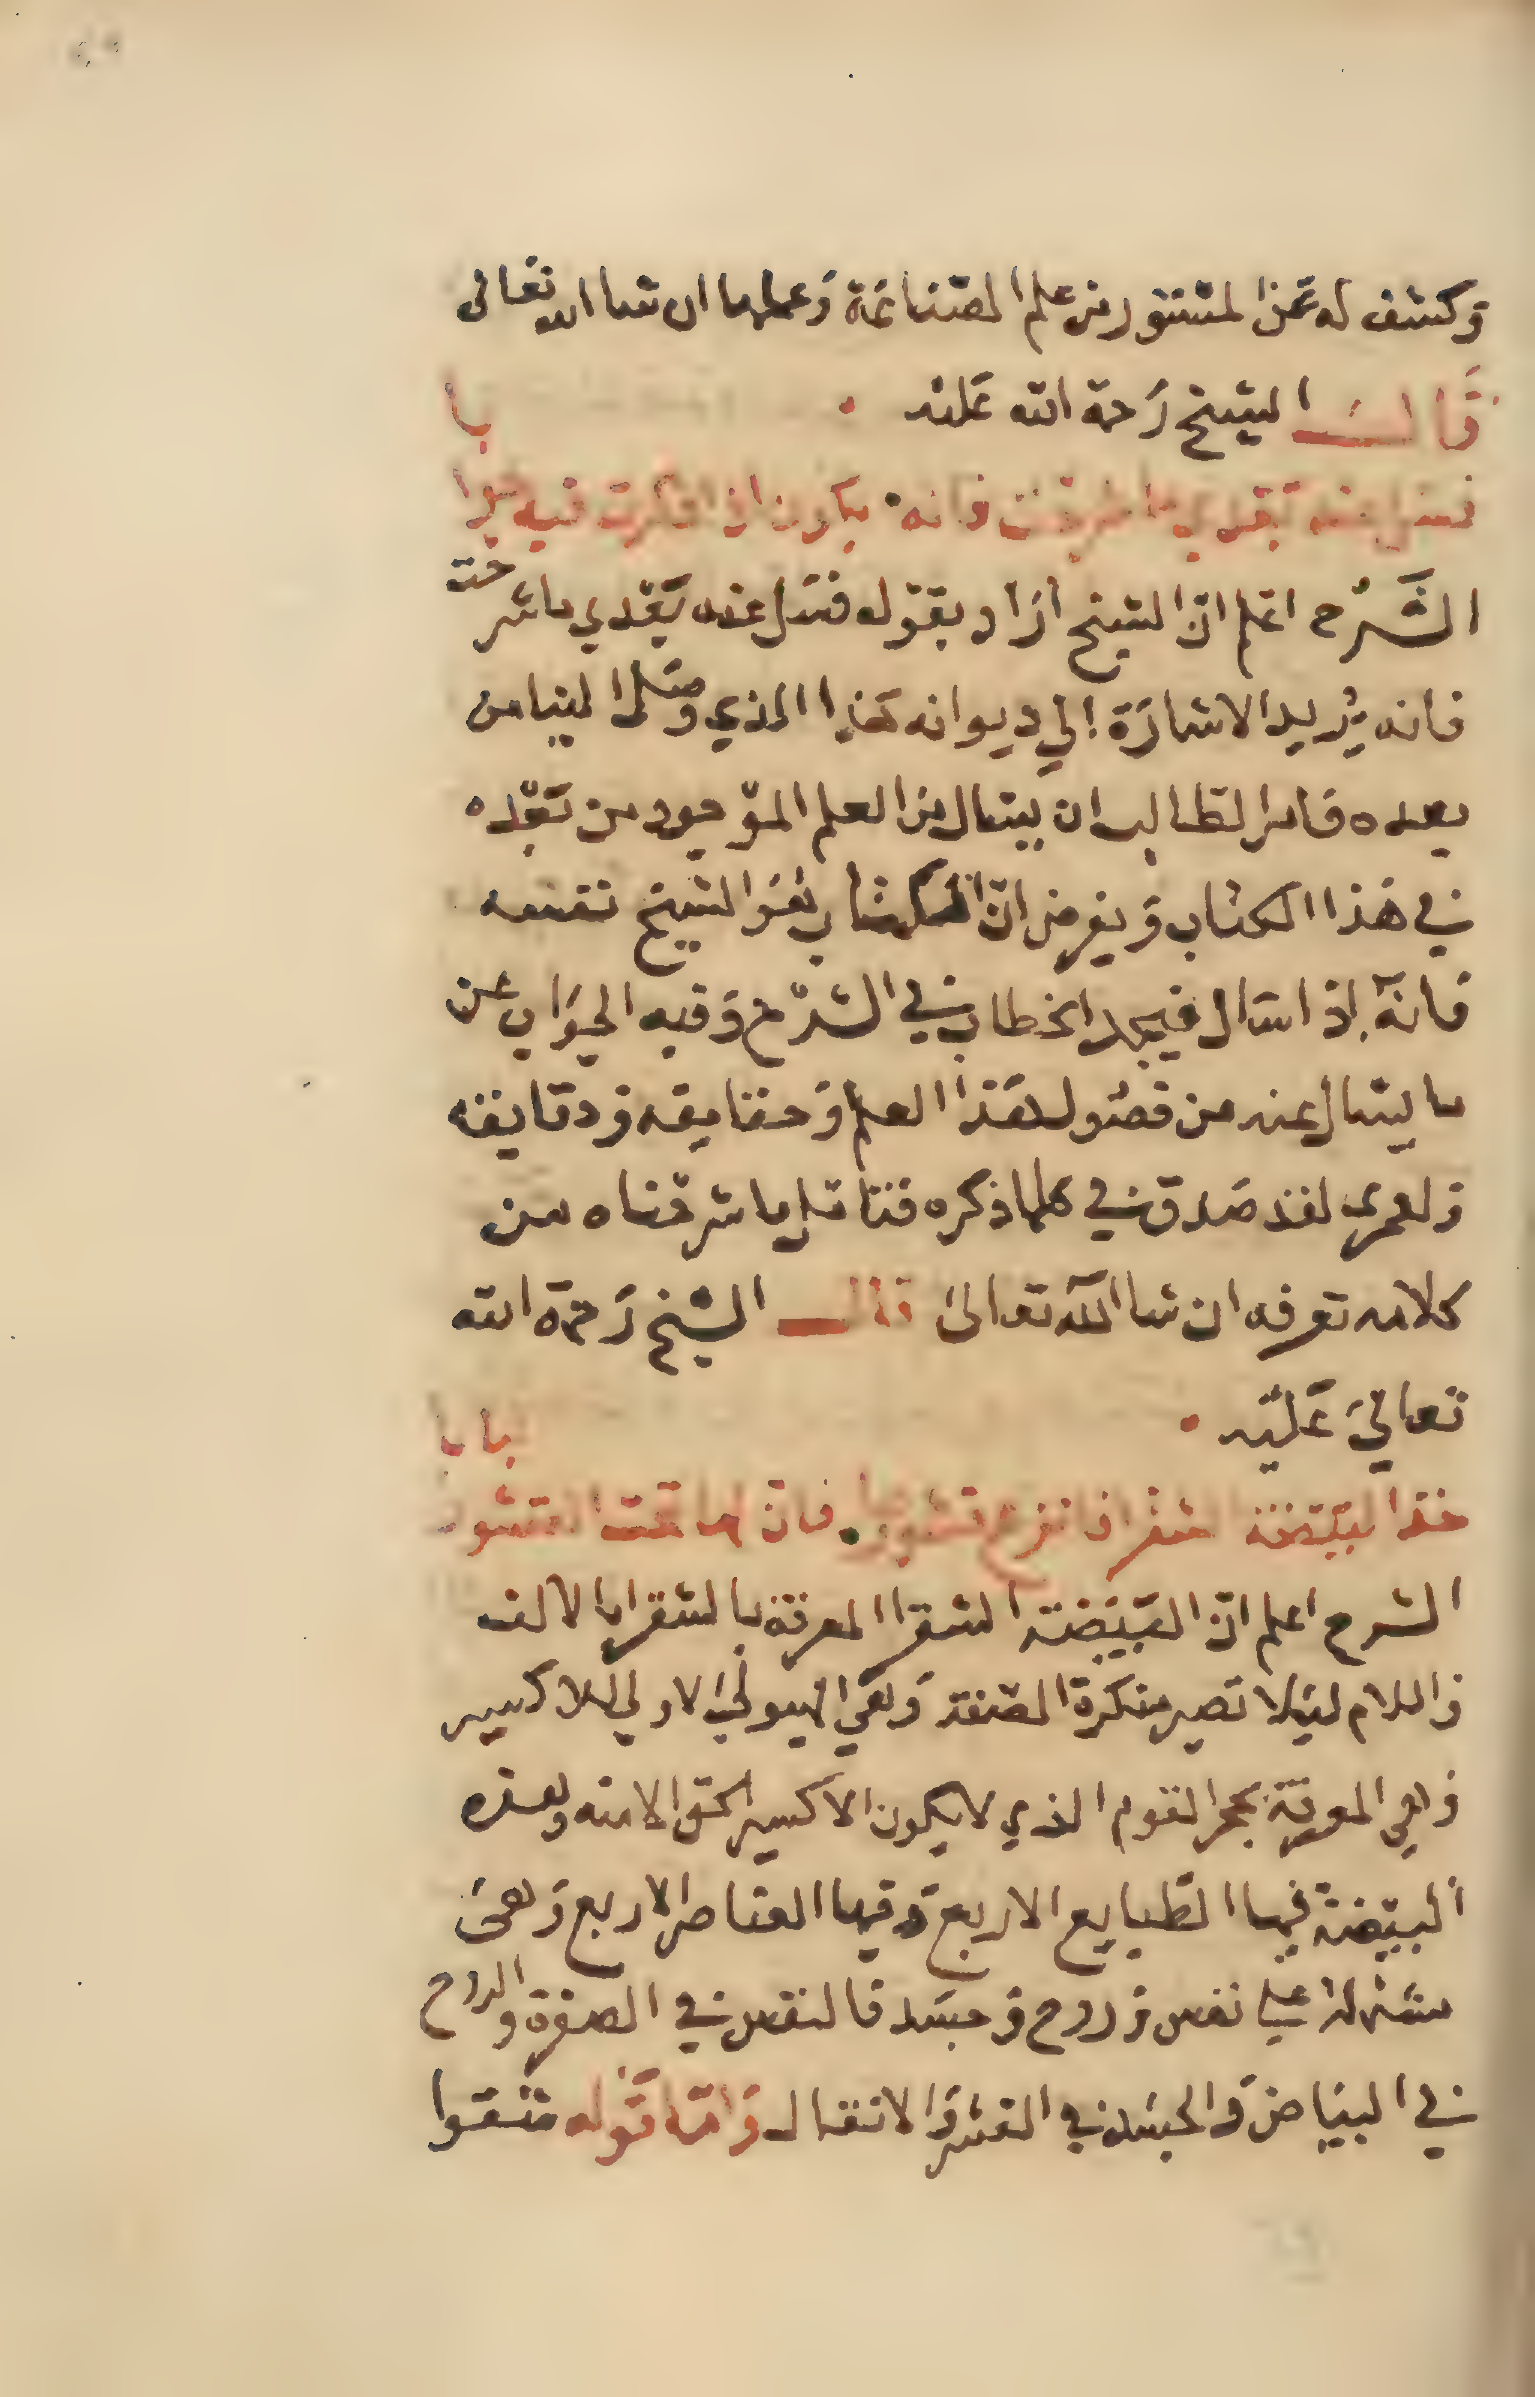 وكشف له عن المستور من علم الصناعة وعملها ان شا الله تعالى
قال الشيخ رحمة الله عليه
فسل عنه بعدي ما شرحت فانه يكون اذا فكرت فيه
الشرح اعلم ان الشيخ اراد بقوله فسل عنه بعدي ما شرحت
فانه يريد الاشارة الي ديوانه هذا الذي وصل الينا من
بعده فامر الطالب ان يسال من العلم الموجود من بعده
في هذا الكتاب ويفرض ان الكتاب هو الشيخ نفسه
فانه اذا سال فيجد الخطاب في الشرح وفيه الجواب عن
ما يسال عنه من فصول هذا العلم وحقايقه ودقايقه
ولعمري لقد صدق في كلما ذكره فتامل ما شرحناه من
كلامه تعرفه ان شا الله تعالى قال الشيخ رحمة الله
تعالي عليه
خذ البيضة الشقرا فانزع قشورها فان لها تحت القشور
الشرح اعلم ان البيضة الشقرا المعرفة بالشقرا بالالف
واللام ليلا تصير منكرة الصفة وهي الهيولي الاولي للاكسير
وهي المعروفة بحجر القوم الذي لا يكون الاكسير الحق الا منه وهذه
البيضة فيها الطبايع الاربع وفيها العناصر الاربع وهى
مشتملة علي نفس وروح وجسد فالنفس في الصفرة والروح
في البياض والجسد في القشر والانتقال واما قوله